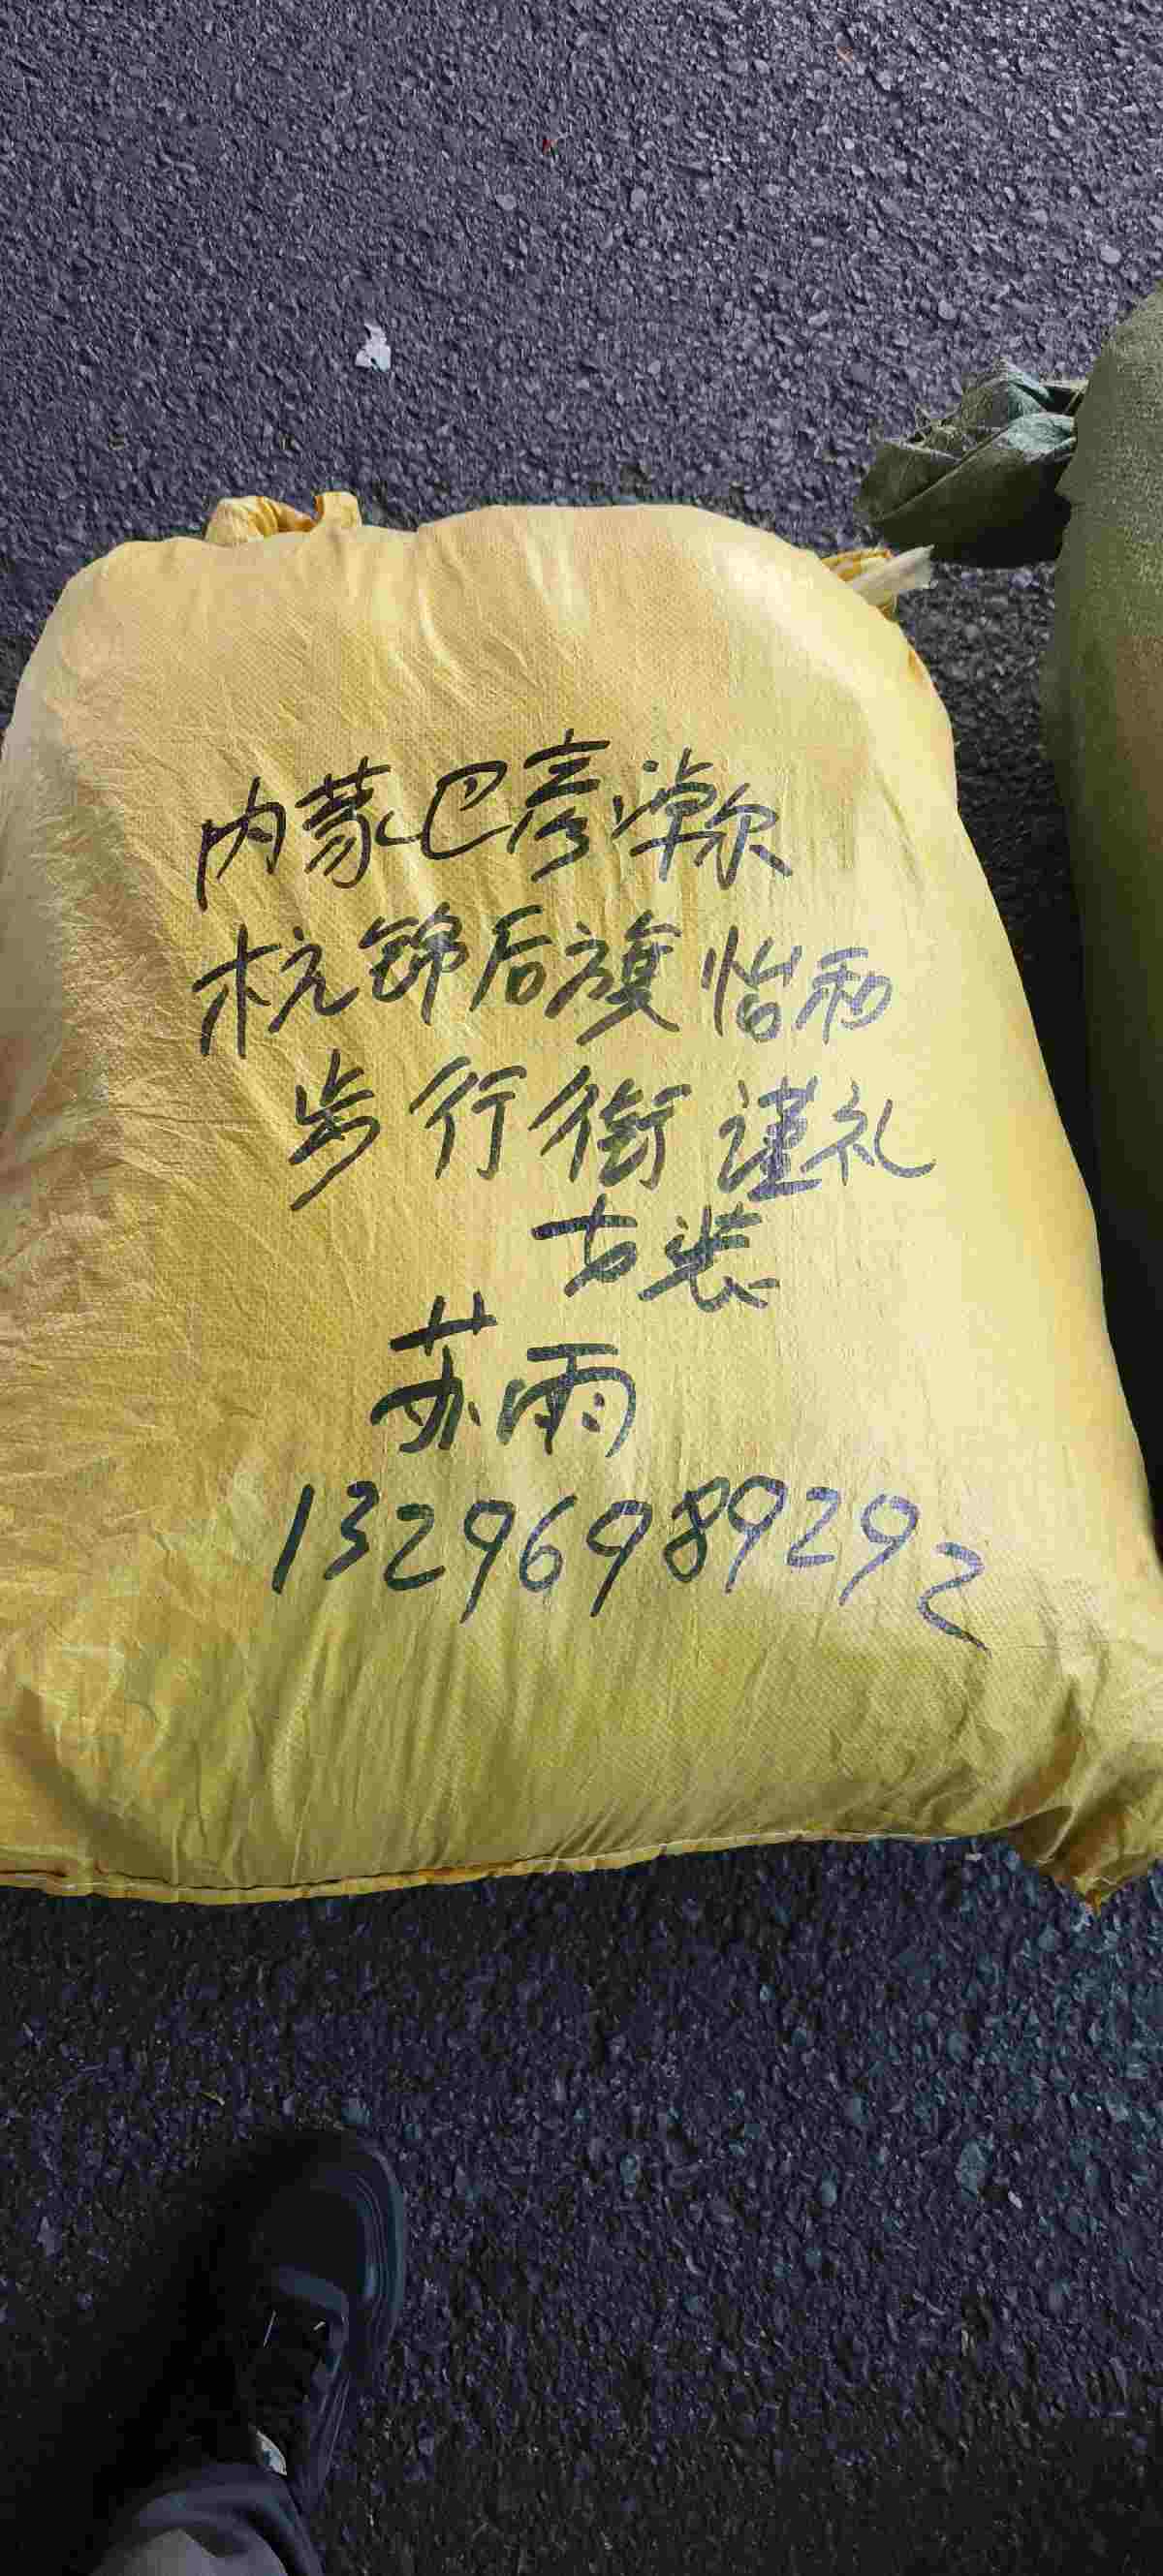 内蒙巴彦淖尔
杭锦后旗怡和
步行街谨礼
古装
苏雨
13296989292